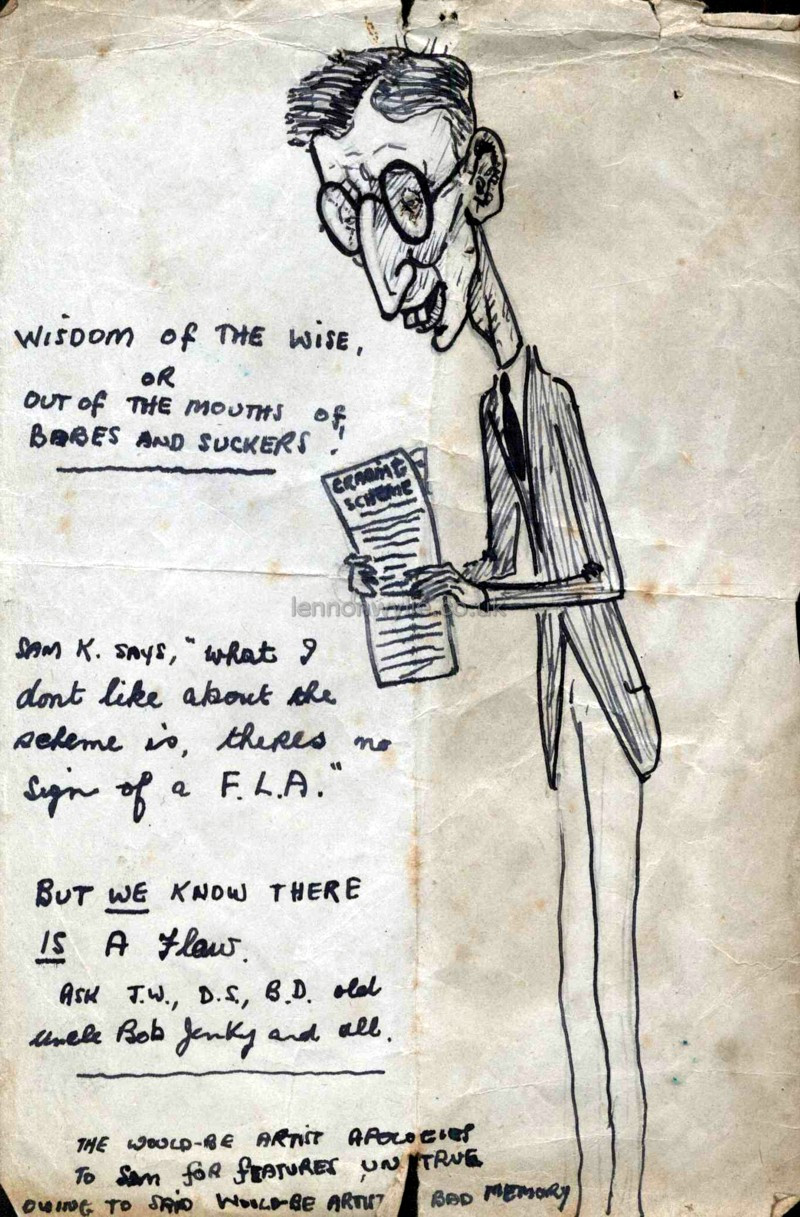 WISDOM OF THE WISE,
OR
OUT OF THE MOUTHS OF
BABES AND SUCKERS!
GRADING
SCHEME
lennonwylie.co.uk
SAM K. SAYS, "What I
dont like about the
scheme is, theres no
sign of a F.L.A."
BUT WE KNOW THERE
IS A Flaw.
ASK J.W., D.S., B.D. old
uncle Bob Jenky and all.
THE WOULD-BE ARTIST APOLOGIES
TO SAM FOR FEATURES UNTRUE
OWING TO SAID WOULD-BE ARTIST BAD MEMORY